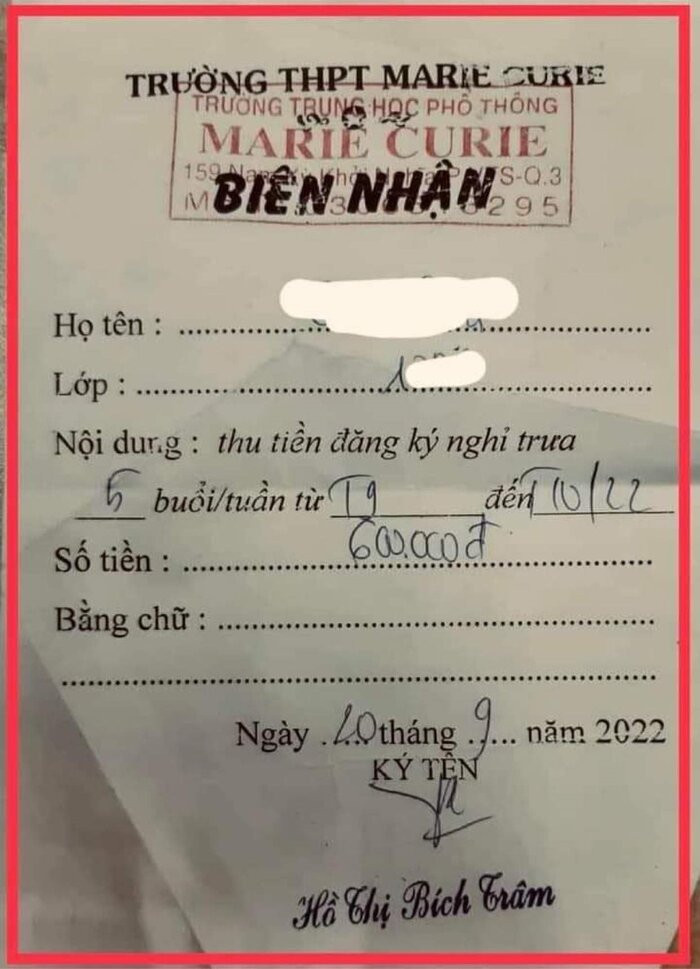 TRƯỜNG THPT MARIE CURIE
TRƯỜNG TRUNG HỌC PHỔ THÔNG
MARIE CURIE
159 Nam Kỳ Khởi Nghĩa P. -Q.3
BIÊN NHẬN
M 295
Họ tên :
Lớp : 1
Nội dung : thu tiền đăng ký nghỉ trưa
5 buổi/tuần từ T9 đến T10/22
Số tiền : 600.000đ
Bằng chữ :
Ngày 20 tháng 9 năm 2022
KÝ TÊN
Hồ Thị Bích Trâm